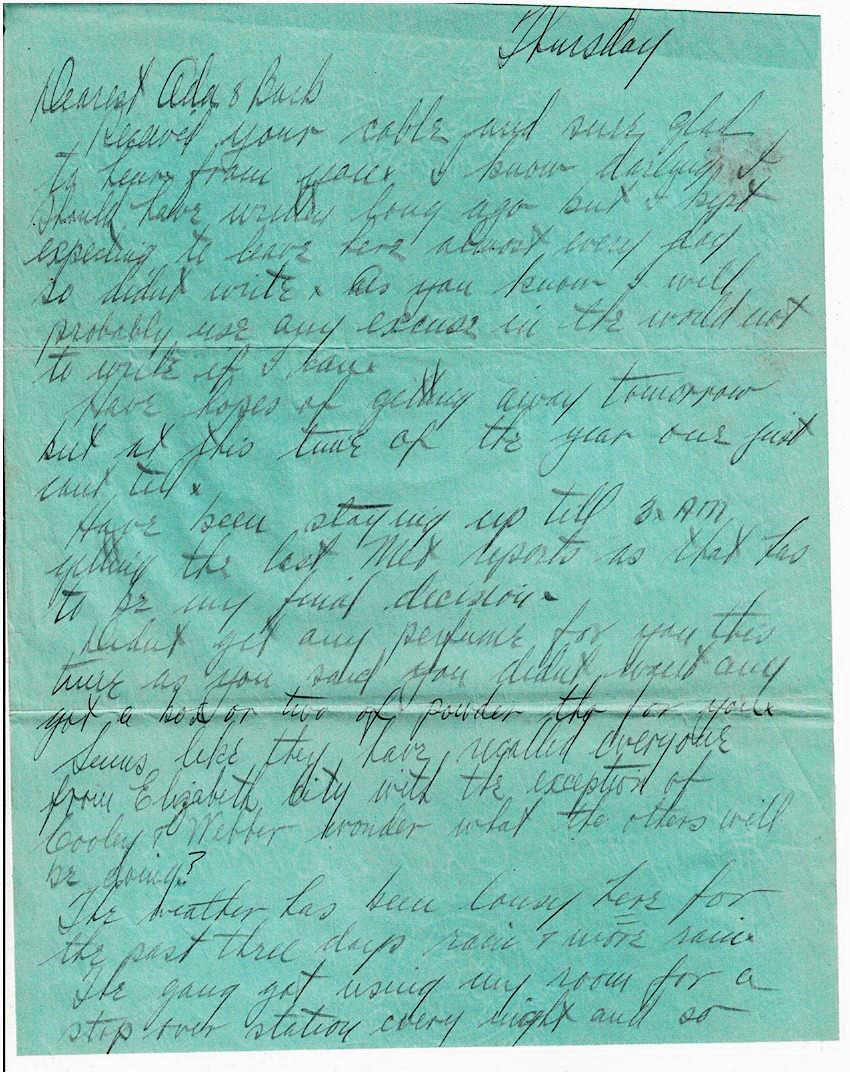 Thursday
Dearest Ada & Buck
Received your cable and sure glad
to hear from you x I know darlying I
should have written long ago but I kept
expecting to leave here almost every day
so didnt write x As you know I will
probably use any excuse in the world not
to write if I can x
Have hopes of getting away tomorrow
but at this time of the year one just
cant tell x
Have been staying up till 3 x AM
getting the last Met reports as that has
to be my final decision x
Didnt get any perfume for you this
time as you said you didnt want any
got a box or two of powder tho for you x
Seems like they have recalled everyone
from Elizabeth City with the exception of
Cooley & Webber wonder what the others will
be doing?
The weather has been lousy here for
the past three days rain & more rain x
The gang got using my room for a
stop over station every night and so